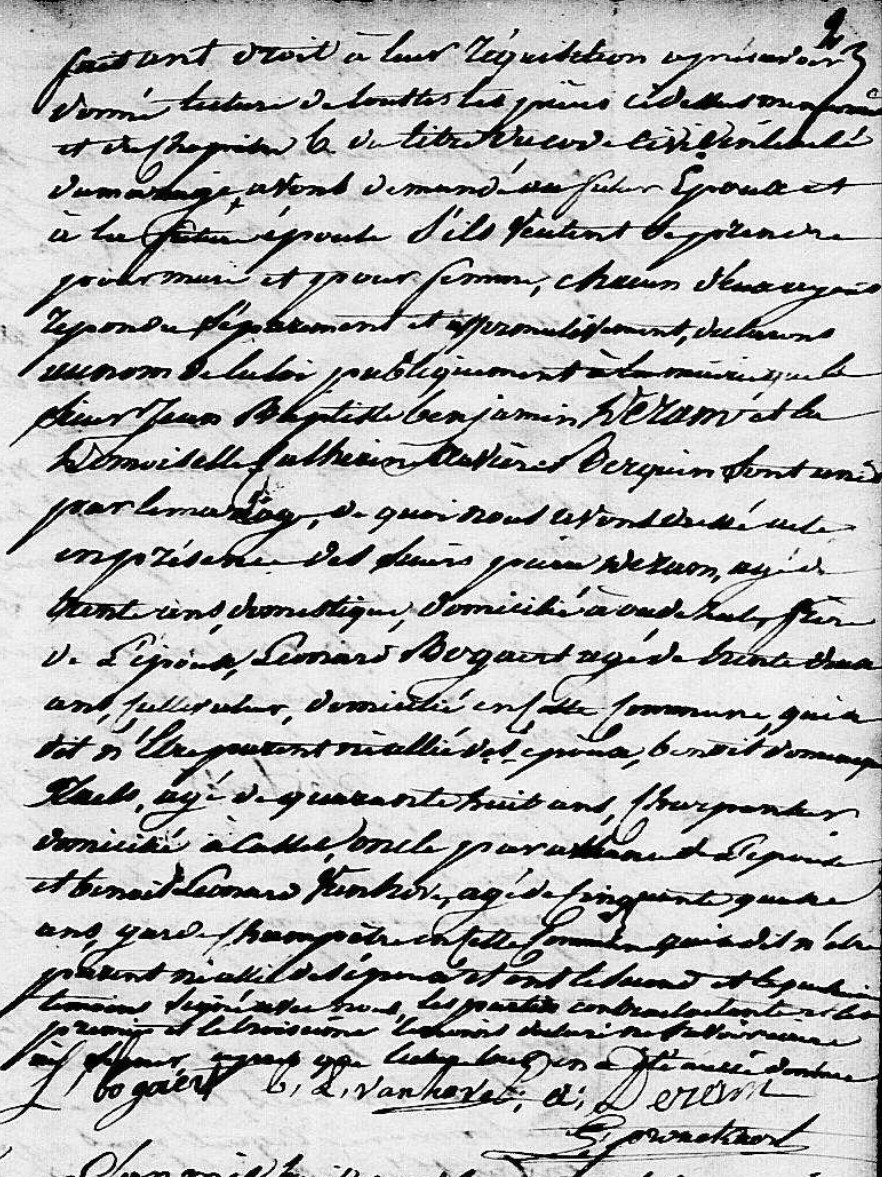 2
faisant droit à leur réquisition après avoir
donné lecture de touttes les pièces ci dessus mentionnées
et du chapitre 6 du titre du code civil intitulé
du mariage avons demandé au futur Epoux et
à la future épouse s'ils veulent se prendre
pour mari et pour femme, chacun d'eux ayant
répondu séparément et affirmativement, declarons
au nom de la loi publiquement à la mairie que le
sieur Jean Baptiste benjamin Deram et la
Demoiselle Catherine Becquin sont unis
par le mariage, de quoi nous avons dressé acte
en présence des sieurs Deram, agé de
trente ans, domestique, domicilié à oudezeele, frère
de L'époux, Léonard Bogaert agé de trente deux
ans, cultivateur, domicilié en Cette Commune, qui a
dit n'être parent ni allié des époux, benoit dominique
agé de quarante huit ans, Charpentier
domicilié à Cassel, oncle par alliance de L'épouse
et benoit Léonard Vanhove, agé de Cinquante quatre
ans, garde Champêtre en Cette Commune qui a dit n'être
parent ni allié des époux et ont le second et le quatrième
temoins signé avec nous, les parties contractantes et les
premier et le troisième témoins declaré ne savoir écrire
ni signer après que lecture leur en a été aussi donnée
L bogaert b, L, vanhove, a; Deram